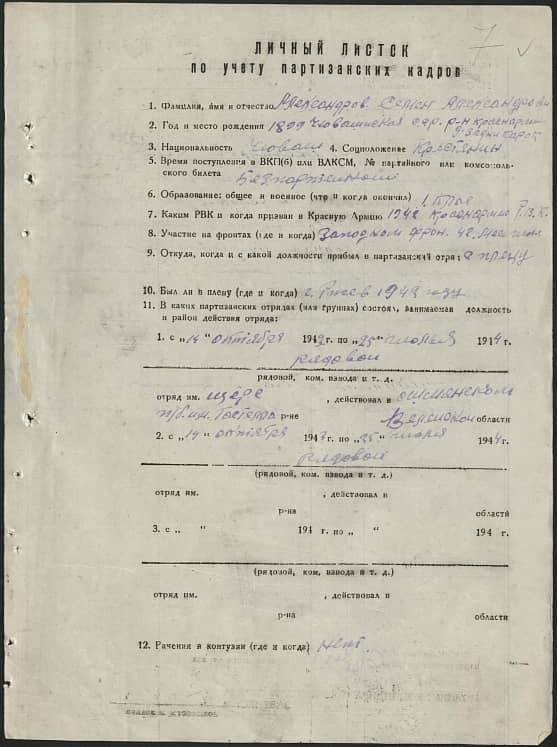 7
ЛИЧНЫЙ ЛИСТОК
по учету партизанских кадров
1. Фамилия, имя и отчество Александров Семен Александрович
2. Год и место рождения 1899 Чувашинская р-н
3. Национальность Чуваш 4. Соцположение Крестянин
5. Время поступления в ВКП(б) или ВЛКСМ, № партийного или комсомоль-
ского билета Безпартейный
6. Образование: общее и военное (что и когда окончил)
7. Каким РВК и когда призван в Красную Армию 1942
8. Участие на фронтах (где и когда) Западном фрон. 42
9. Откуда, когда и с какой должности прибыл в партизанский отряд: с плену
10. Был ли в плену (где и когда) г. Ржев 1942 году
11. В каких партизанских отрядах (или группах) состоял, занимаемая должность
и район действия отряда:
1. с „14“ октября 1943 г. по „25“ 1944 г.
рядовой
рядовой, ком. взвода и т. д.
отряд им. Щорс , действовал в ошмянском
п/б. им. Гастелло р-не области
2. с „14“ октября 1943 г. по „25“ 1944 г.
рядовой
(рядовой, ком. взвода и т. д.)
отряд им. , действовал в
р-на области
3. с „ “ 194 г. по „ “ 194 г.
(рядовой, ком. взвода и т. д.)
отряд им. , действовал в
р-на области
12. Ранения и контузии (где и когда) нет.